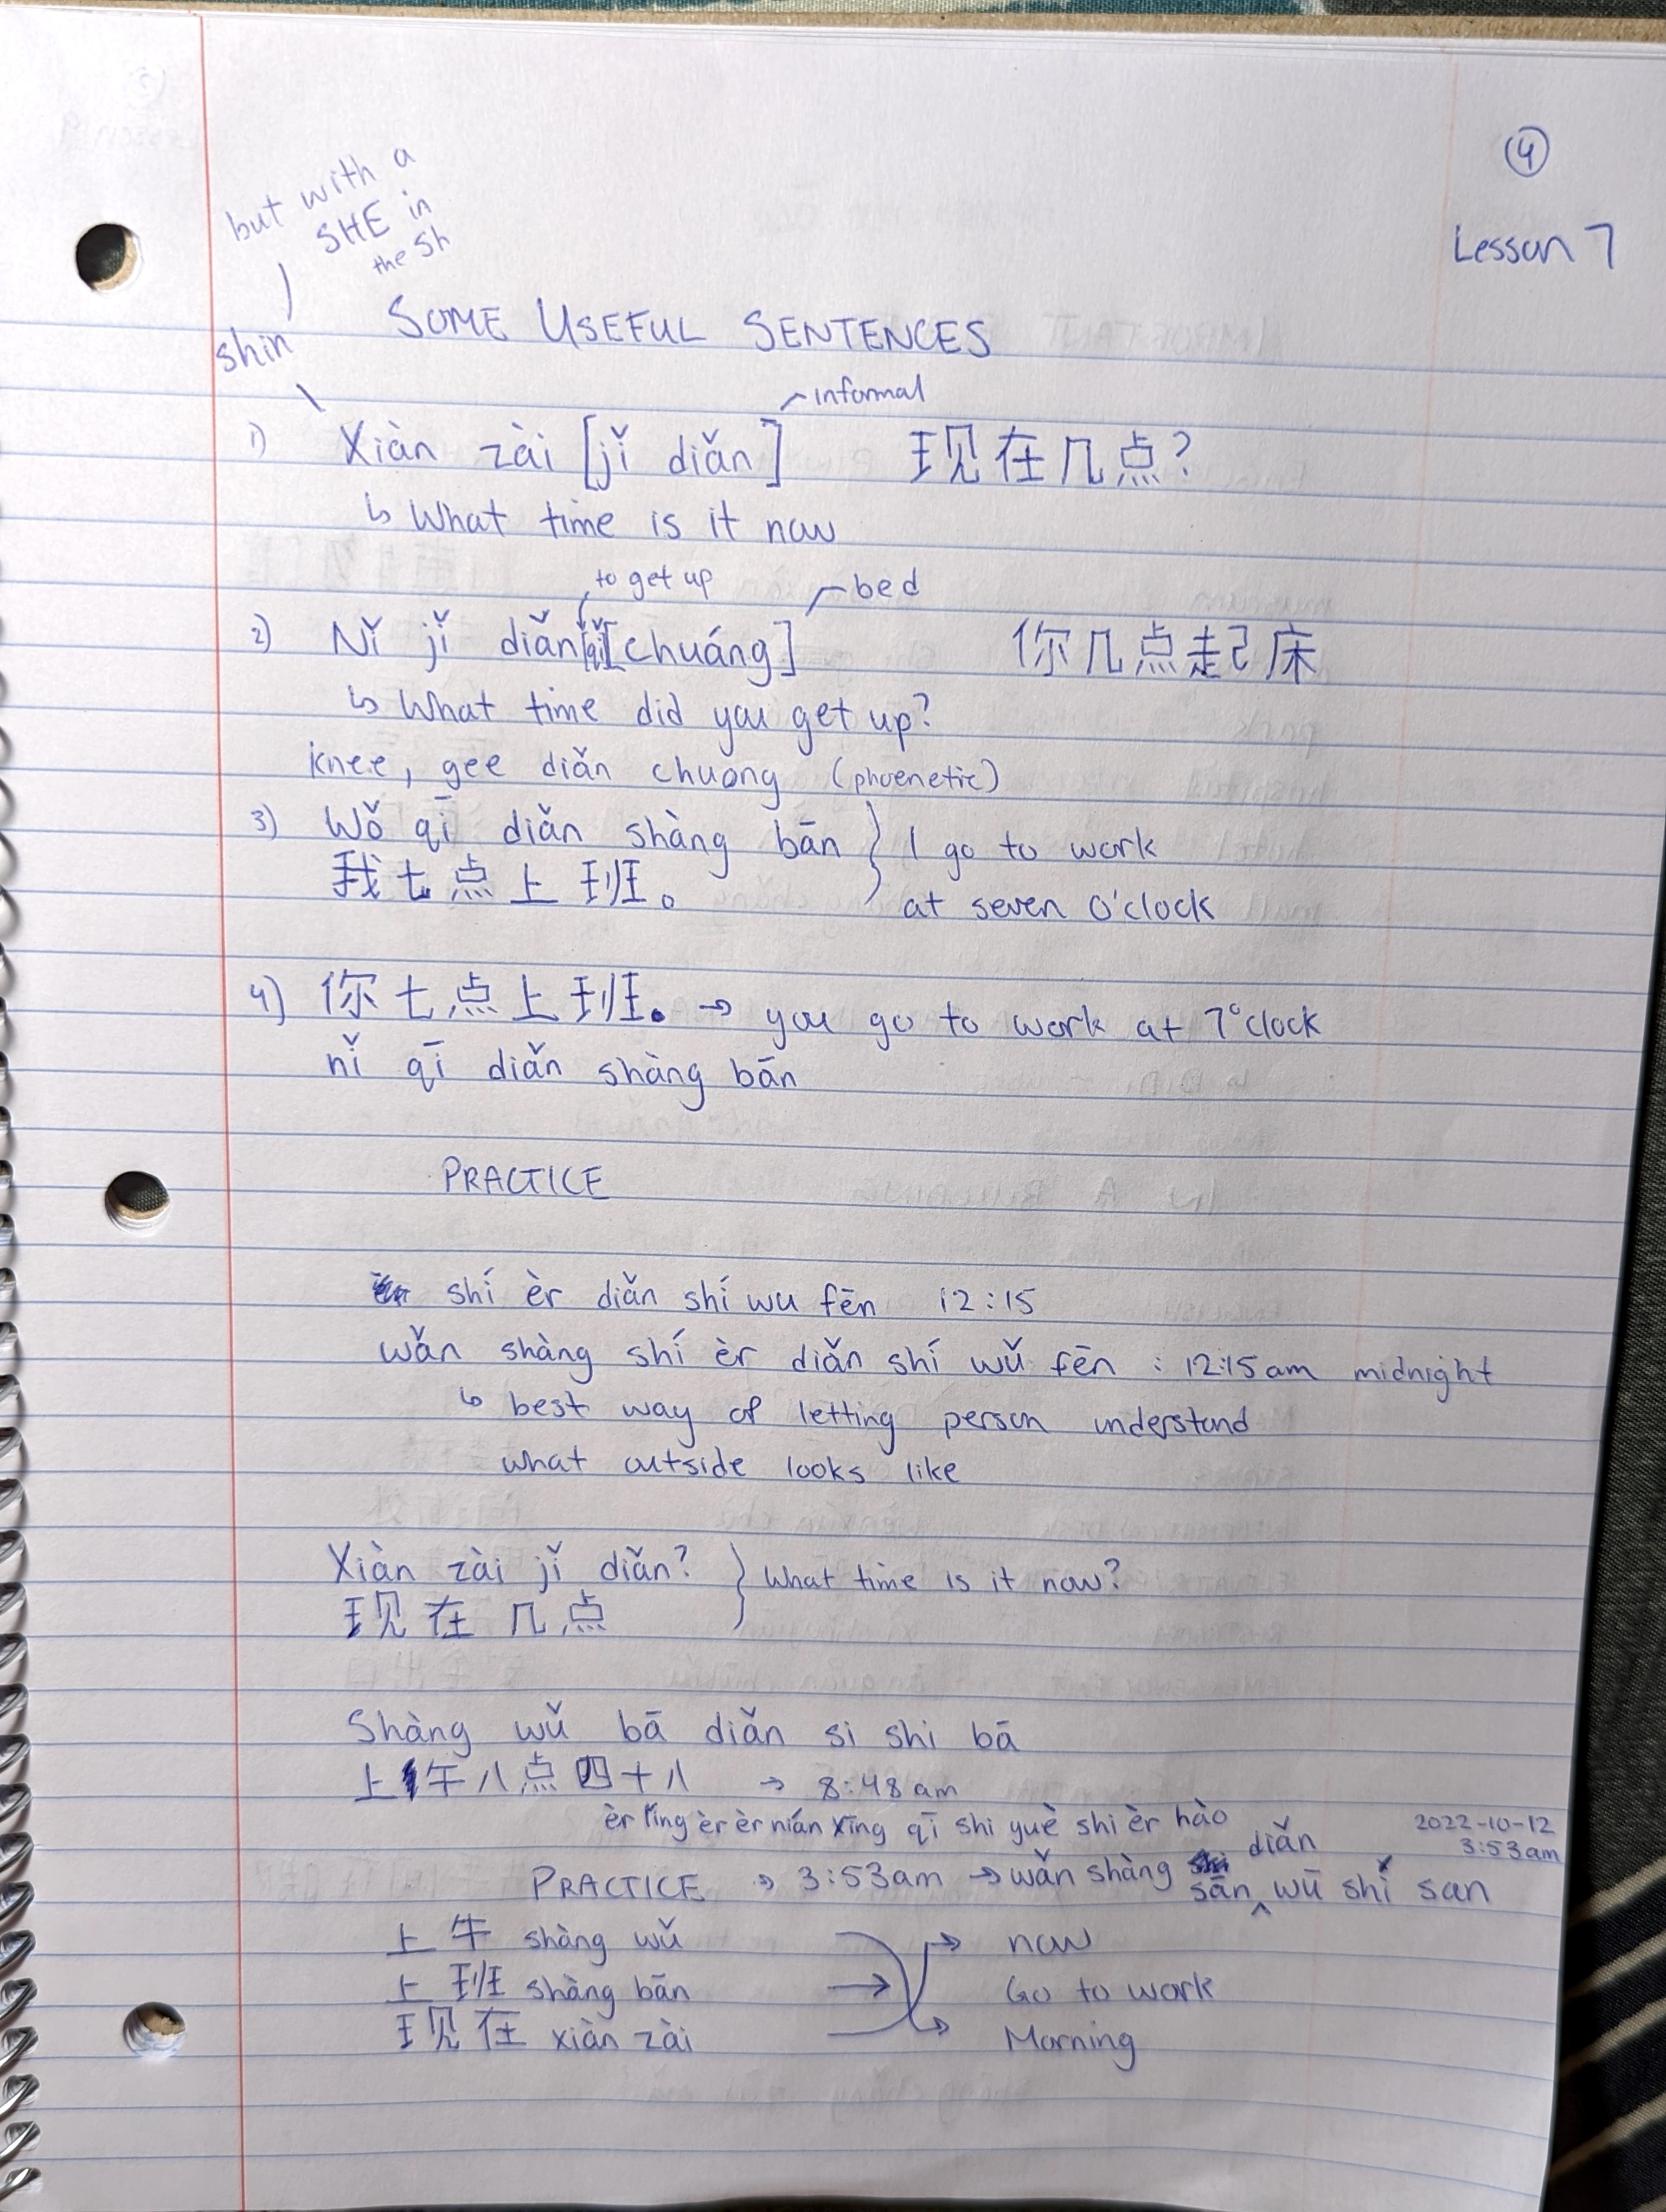 ④
Lesson 7
but with a
SHE in
the Sh
shin
SOME USEFUL SENTENCES
informal
1) Xiàn zài [jǐ diǎn] 现在几点?
↳ What time is it now
to get up
bed
2) Nǐ jǐ diǎn [qǐ][chuáng] 你几点起床
↳ What time did you get up?
knee, gee diǎn chuong (phoenetic)
3) Wǒ qī diǎn shàng bān } I go to work
我七点上班。 at seven o'clock
4) 你七点上班。→ you go to work at 7°clock
nǐ qī diǎn shàng bān
PRACTICE
shí èr diǎn shí wu fēn 12:15
wǎn shàng shí èr diǎn shí wǔ fēn : 12:15am midnight
↳ best way of letting person understand
what outside looks like
Xiàn zài jǐ diǎn? } What time is it now?
现在几点
Shàng wǔ bā diǎn si shi bā
上午八点四十八 → 8:48am
èr líng èr èr nián xīng qī shi yuè shi èr hào
2022-10-12
3:53am
diǎn
PRACTICE → 3:53am → wǎn shàng sān ^ wū shí san
上牛 shàng wǔ → now
上班 shàng bān → Go to work
现在 xiàn zài → Morning